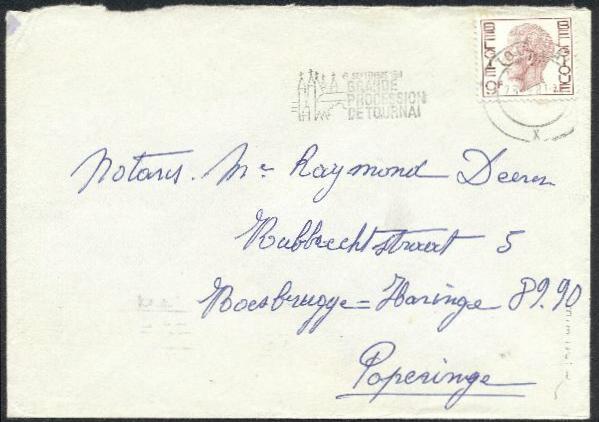 BELGIE 9F BELGIQUE
GRANDE
PROCESSION
DE TOURNAI
X
Notaris. Mr Raymond Deeren
Rubbrechtstraat 5
Roesbrugge=Haringe 89.90
Poperinge